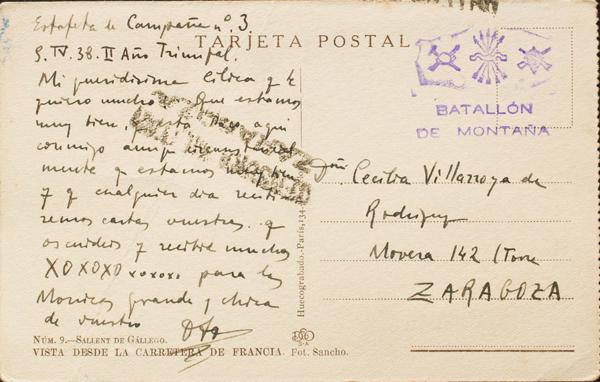 Estafeta de Campaña nº. 3
9. IV. 38. II Año Triunfal.
TARJETA POSTAL
BATALLÓN
DE MONTAÑA
Mi queridisima Cilica q te
quiero mucho: Que estamos
muy bien, Pesta aqui
conmigo aunq circunstancial
mente q estamos muy bien
y q cualquier dia recibi
remos cartas vuestras. q
os cuideis y recibid muchos
XOXOXO xoxoxo para las
Monicas grande y chica
de vuestro
Cecilia Villarroya de
Rodriguez
Movera 142 (Torre
ZARAGOZA
Huecograbado.-Paris, 134
NÚM. 9.—SALLENT DE GÁLLEGO.
VISTA DESDE LA CARRETERA DE FRANCIA. Fot. Sancho.